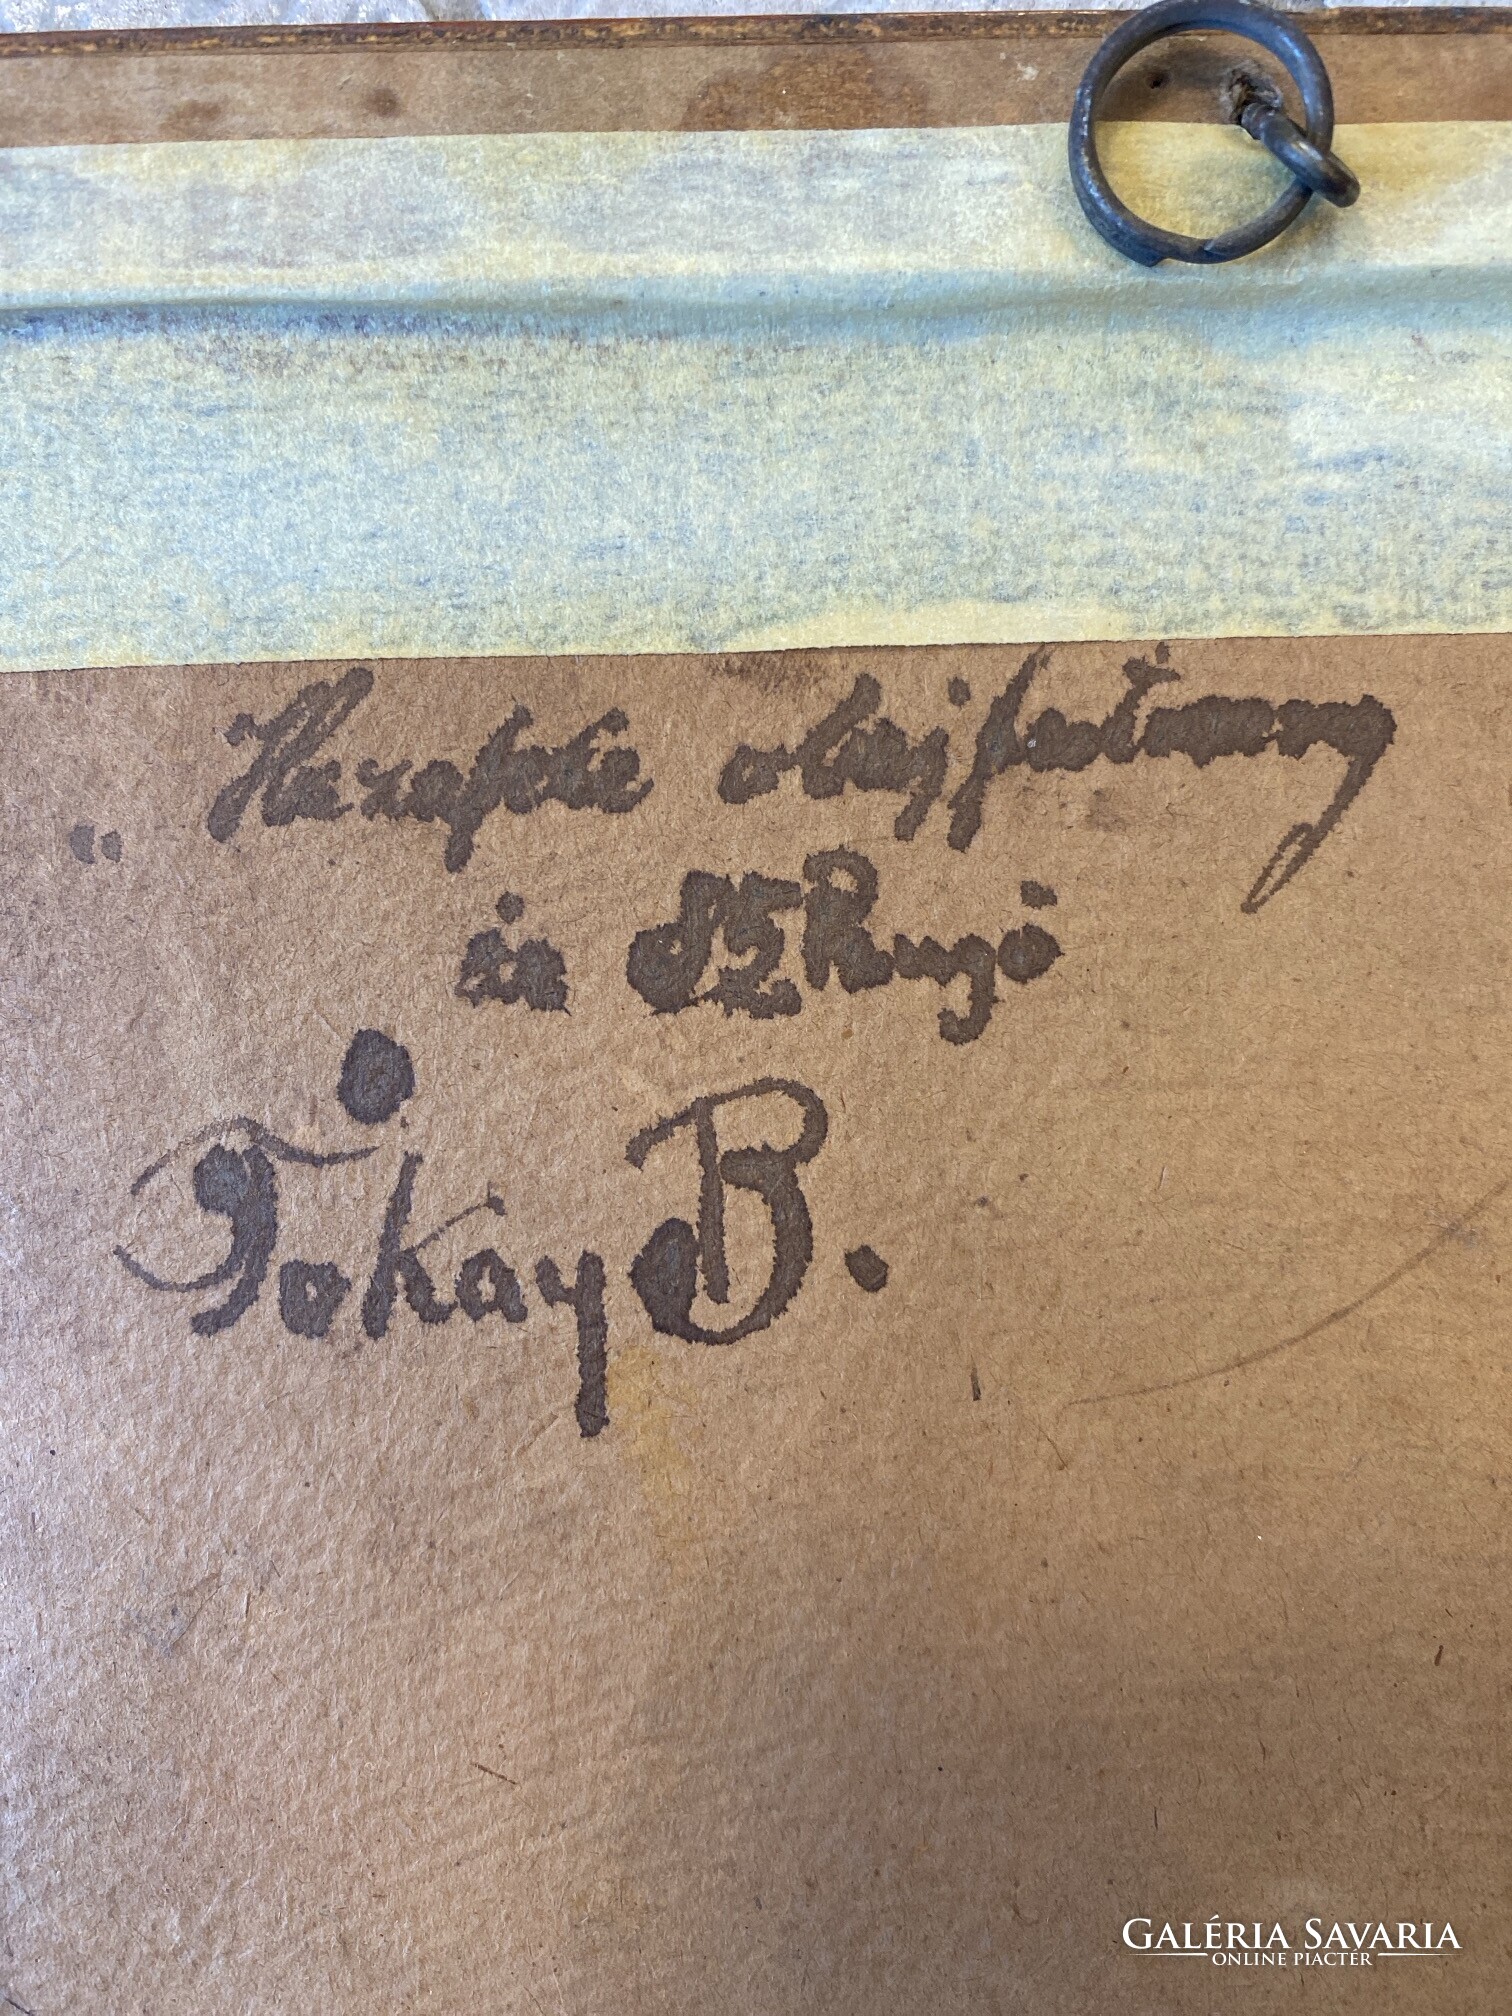 "Hazafele olajfestmény
ára 85 Pengő
Tokay B.
GALÉRIA SAVARIA
ONLINE PIACTÉR